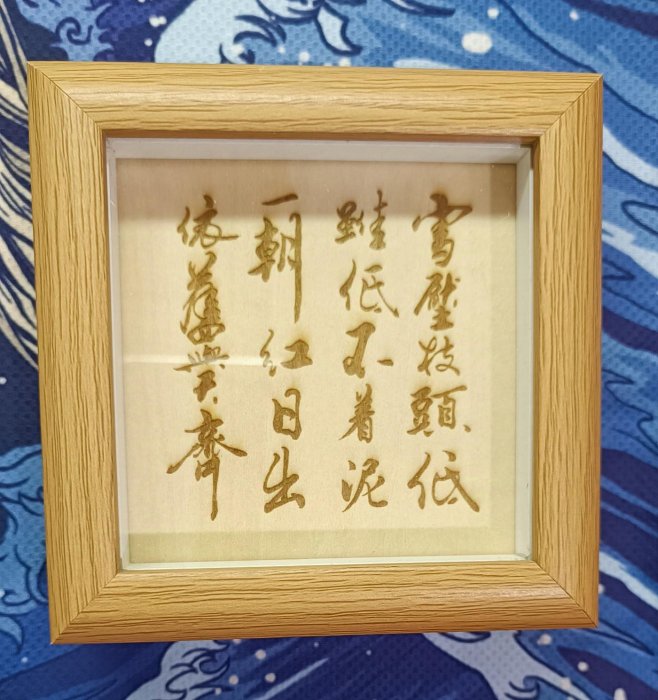 雪壓枝頭低
雖低不着泥
一朝紅日出
依舊與天齊